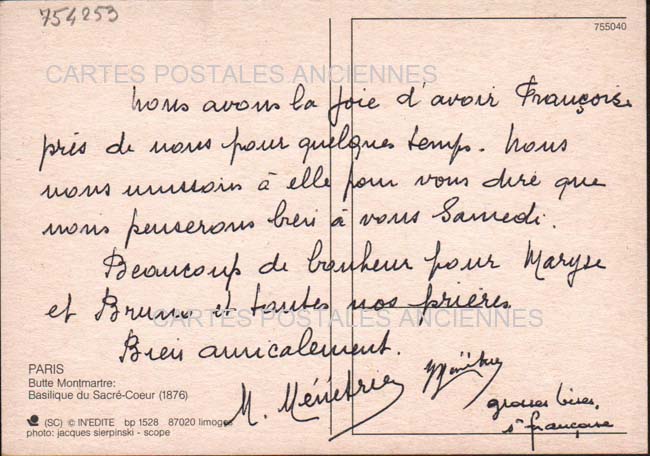 754253
755040
CARTES POSTALES ANCIENNES
Nous avons la joie d'avoir Françoise
près de nous pour quelques temps. Nous
nous unissons à elle pour vous dire que
nous penserons bien à vous Samedi.
Beaucoup de bonheur pour Maryse
et Bruno et toutes nos prières
CARTES POSTALES ANCIENNES
Bien amicalement.
M. Ménétrier
grosses bises,
Sr françoise
PARIS
Butte Montmartre:
Basilique du Sacré-Coeur (1876)
(SC) © IN'EDITE bp 1528 87020 limoges
photo: jacques sierpinski - scope